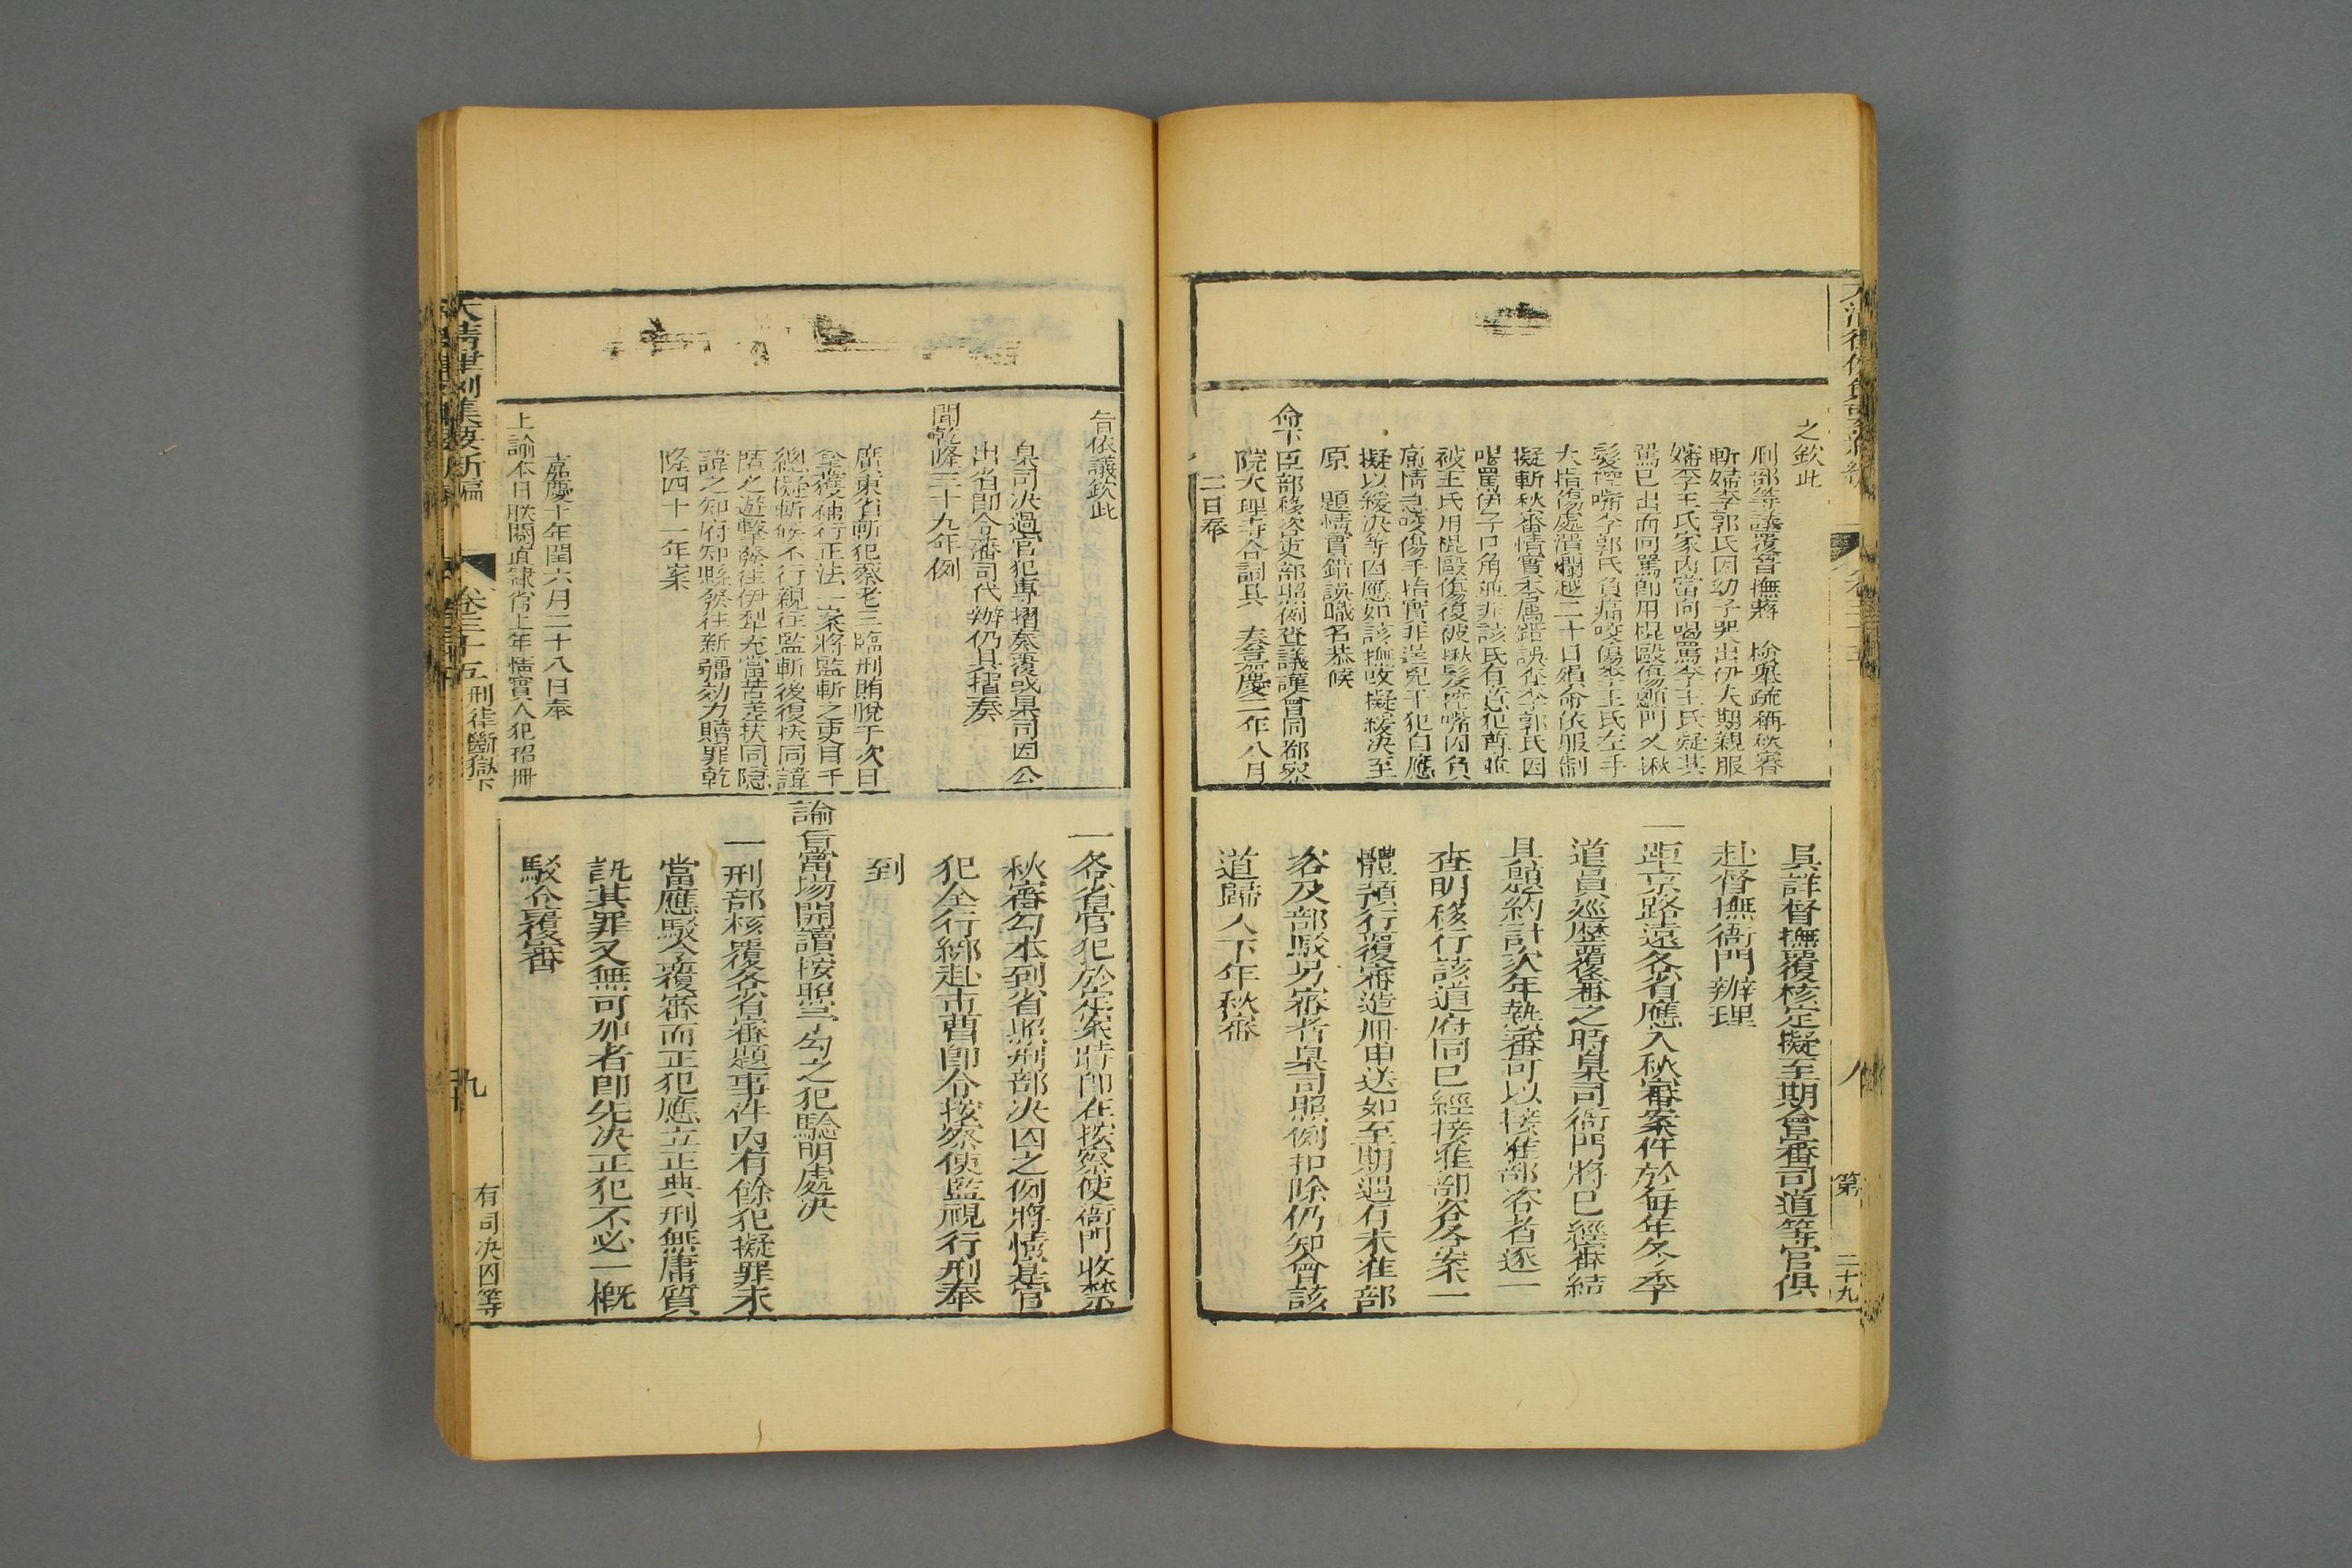 之欽此
刑部等議覆晉撫蔣 檢舉疏稱秋審
斬婦李郭氏因幼子哭出伊大期親服
嬸李王氏家內當向喝罵李王氏疑其
罵己出而同罵卽用棍毆傷顖門又揪
髮控嘴李郭氏負痛咬傷李王氏左手
大指傷處潰爛越二十日殞命依服制
擬斬秋審情實本屬錯誤在李郭氏因
喝罵伊子口角並非該氏有意犯尊並
被王氏用棍毆傷復被揪髮控嘴因負
痛情急咬傷手指實非逞兇干犯自應
擬以緩決等因應如該撫改擬緩決至
原 題情實錯誤職名恭候
命下臣部移咨吏部照例查議謹會同都察
院大理寺合詞具 奏嘉慶二年八月
二日奉
具詳督撫覆核定擬至期會審司道等官俱
赴督撫衙門辦理
一距京路遠各省應入秋審案件於每年冬季
道員巡歷覆審之時臬司衙門將已經審結
具題約計次年熱審可以接准部咨者逐一
查明移行該道府同已經接准部咨各案一
體預行覆審造冊申送如至期遇有未准部
咨及部駁另審者臬司照例扣除仍知會該
道歸入下年秋審
卷三十五
八
第
二十九
旨依議欽此
臬司決過官犯專摺奏覆或臬司因公
出省卽令藩司代辦仍具摺奏
聞乾隆三十九年例
廣東省斬犯蔡老三臨刑賄脫于次日
拿獲補行正法一案將監斬之吏目千
總擬斬候不行親往監斬後復扶同諱
匿之遊擊發往伊犁充當苦差扶同隱
諱之知府知縣發往新疆効力贖罪乾
隆四十一年案
嘉慶十年閏六月二十八日奉
上諭本日朕閱直隸省上年情實人犯招冊
一各省官犯於定案時卽在按察使衙門收禁
秋審勾本到省照刑部決囚之例將情實官
犯全行綁赴市曹卽令按察使監視行刑奉
到
諭旨當場開讀按照予勾之犯驗明處決
一刑部核覆各省審題事件內有餘犯擬罪未
當應駁令覆審而正犯應立正典刑無庸質
訊其罪又無可加者卽先決正犯不必一概
駁令覆審
大清律例集要新編
卷三十五
刑律斷獄下
九
有司決囚等